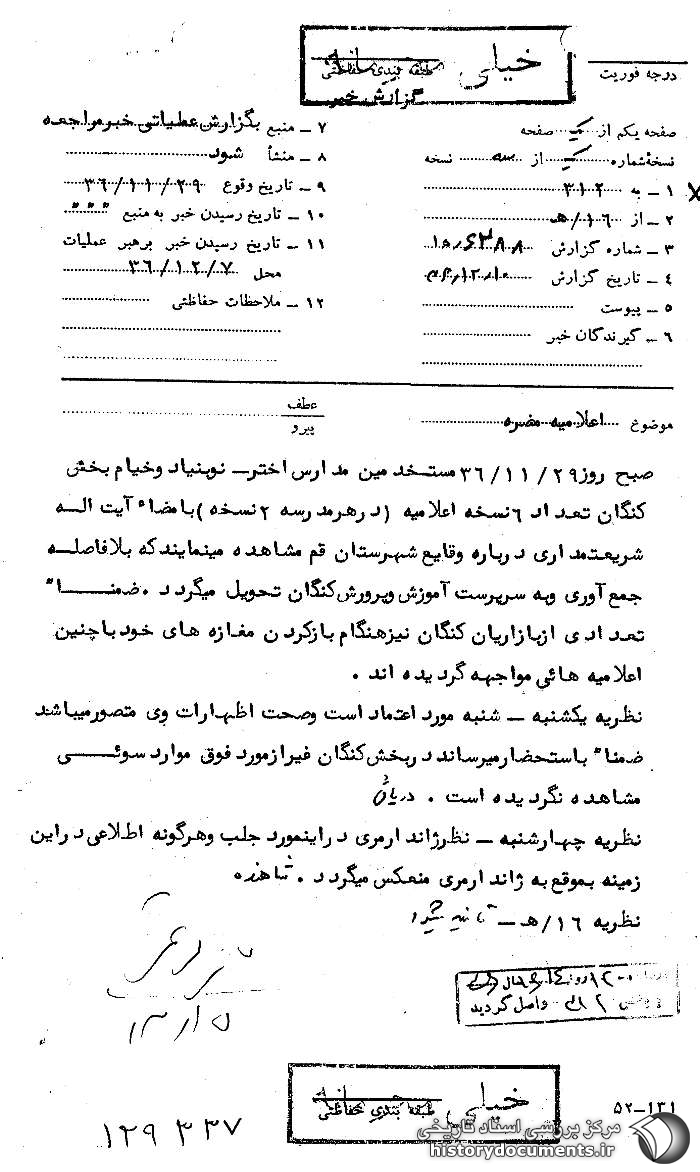 خیلی محرمانه
طبقه بندی حفاظتی
گزارش خبر
درجه فوریت
صفحه یکم از یک صفحه
نسخهٔ شماره یک از سه نسخه
۱ ـ به ۳۱۲
۲ ـ از ۱۶/هـ
۳ ـ شماره گزارش
۴ ـ تاریخ گزارش
۵ ـ پیوست
۶ ـ گیرندگان خبر
۷ ـ منبع بگزارش عطیاتی خبر مراجعه
۸ ـ منشأ شود
۹ ـ تاریخ وقوع ۳۶/۱۱/۲۹
۱۰ ـ تاریخ رسیدن خبر به منبع " " "
۱۱ ـ تاریخ رسیدن خبر برهبر عملیات
محل ۳۶/۱۲/۷
۱۲ ـ ملاحظات حفاظتی
موضوع اعلامیه مضره
عطف
پیرو
صبح روز ۳۶/۱۱/۲۹ مستخدمین مدارس اختر ـ نوبنیاد وخیام بخش
کنگان تعداد ۶ نسخه اعلامیه (درهرمدرسه ۲ نسخه) بامضاء آیت اله
شریعتمداری درباره وقایع شهرستان قم مشاهده مینمایند که بلافاصله
جمع آوری وبه سرپرست آموزش وپرورش کنگان تحویل میگردد . ضمنا"
تعدادی ازبازاریان کنگان نیزهنگام بازکردن مغازه های خود باچنین
اعلامیه هائی مواجهه گردیده اند .
نظریه یکشنبه ـ شنبه مورد اعتماد است وصحت اظهارات وی متصورمیباشد
ضمنا" باستحضارمیرساند دربخش کنگان غیرازمورد فوق موارد سوئی
مشاهده نگردیده است .
نظریه چهارشنبه ـ نظرژاندارمری دراینمورد جلب وهرگونه اطلاعی دراین
زمینه بموقع به ژاندارمری منعکس میگردد .
نظریه ۱۶/هـ ـ
واصل گردید
خیلی محرمانه
طبقه بندی حفاظتی
۵۲-۱۳۱
۱۲۹ ۳۳۷
مرکز بررسی اسناد تاریخی
historydocuments.ir